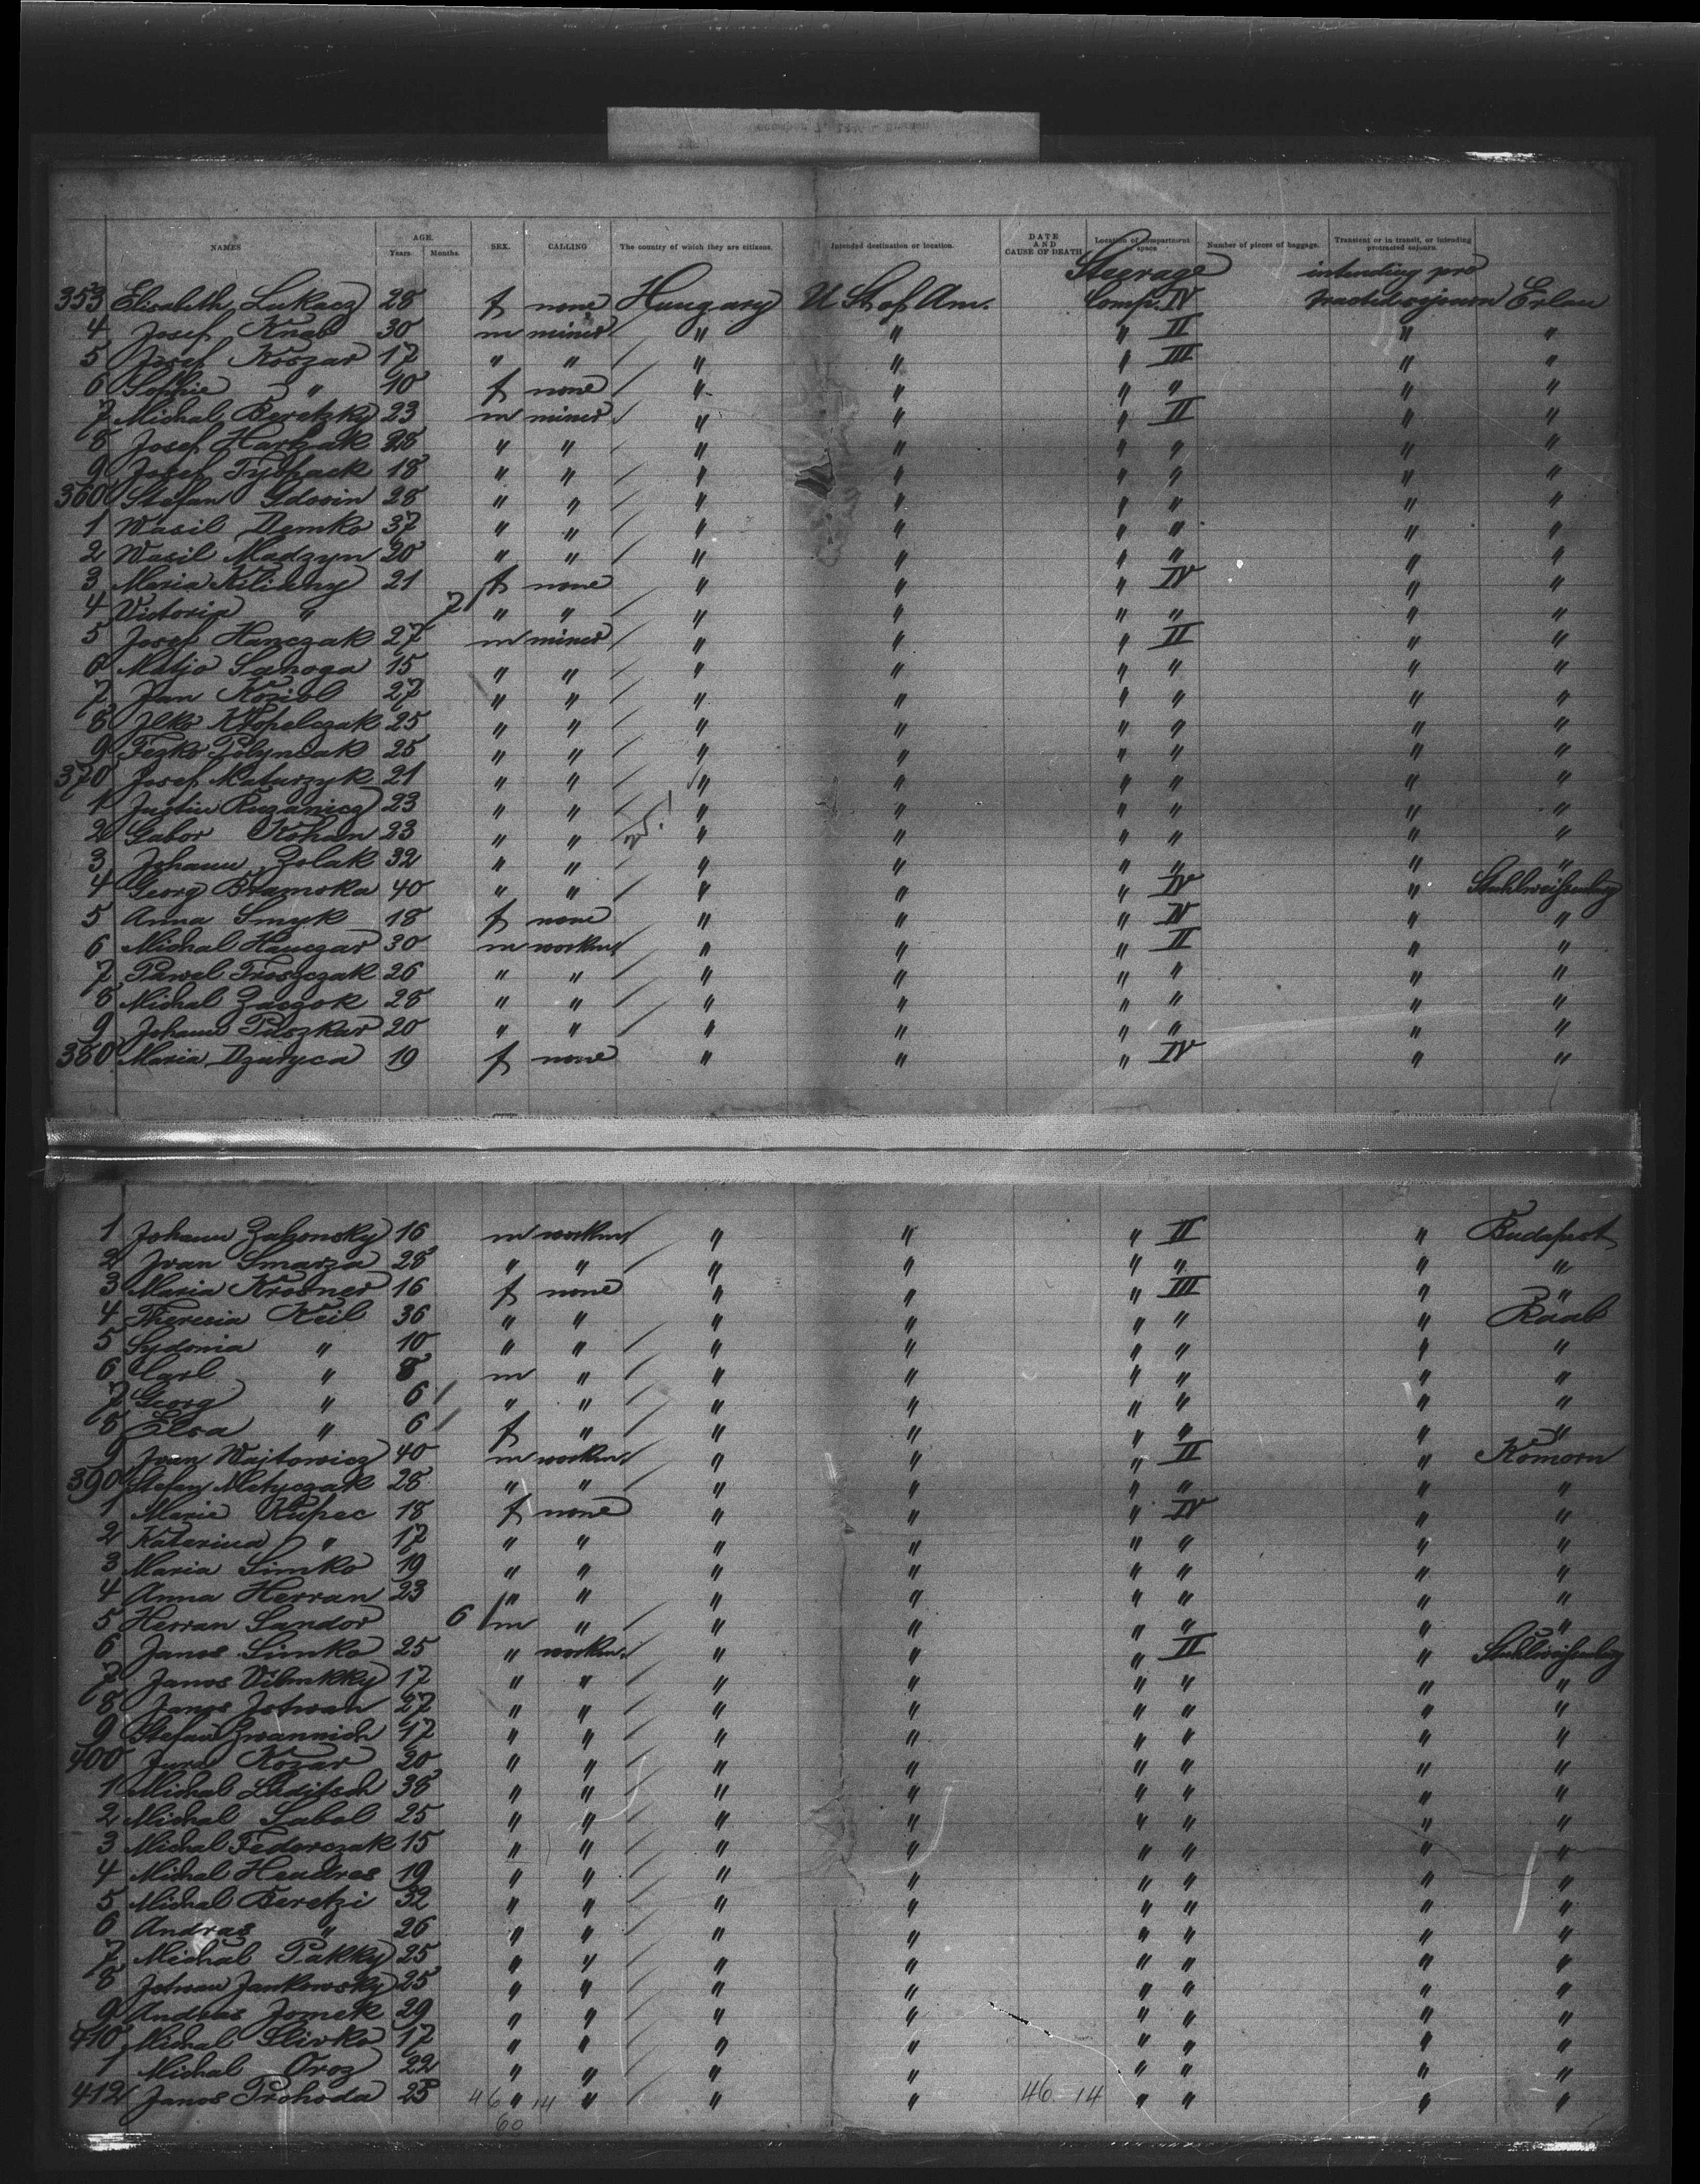 NAMES AGE. Years Months SEX. CALLING The country of which they are citizens. Intended destination or location. DATE AND CAUSE OF DEATH Location of compartment or space Number of pieces of baggage. Transient or in transit, or intending protracted sojourn.
Steerage intending pro
353 Elisabeth Lukacz 28 f none Hungary U St of Am. Comp. IV tracted sojourn Erlau
4 Josef Knab 30 m miner " " " II " "
5 Josef Koszar 17 " " " " " III " "
6 Sophie " 10 f none " " " " " "
7 Michal Beretzky 23 m miner " " " II " "
8 Josef Harzak 28 " " " " " " " "
9 Josef Tyohack 18 " " " " " " " "
360 Stefan Gdovin 28 " " " " " " " "
1 Wasil Demko 37 " " " " " " " "
2 Wasil Madzyn 20 " " " " " " " "
3 Maria Kiliany 21 f none " " " IV " "
4 Victoria " 7 " " " " " " " "
5 Josef Hanczak 27 m miner " " " II " "
6 Matjo Sanoga 15 " " " " " " " "
7 Jan Koziol 27 " " " " " " " "
8 Ilko Klopelczak 25 " " " " " " " "
9 Fezko Polyncak 25 " " " " " " " "
370 Josef Maturzyk 21 " " " " " " " "
1 Justin Ruzanicz 23 " " " " " " " "
2 Gabor Kohan 23 " " " " " " " "
3 Johann Zolak 32 " " " " " " " "
4 Georg Bramska 40 " " " " " IV " Stuhlweißenburg
5 Anna Smyk 18 f none " " " IV " "
6 Michal Hanczar 30 m workm " " " II " "
7 Pawel Troszczak 26 " " " " " " " "
8 Michal Zaczok 28 " " " " " " " "
9 Johann Puszkar 20 " " " " " " " "
380 Maria Dzuryca 19 f none " " " IV " "
1 Johann Zahonsky 16 m workm " " " II " Budapest
2 Ivan Smarza 28 " " " " " " " "
3 Maria Krosner 16 f none " " " III " "
4 Theresia Keil 36 " " " " " " " Raab
5 Sydonia " 10 " " " " " " " "
6 Carl " 8 m " " " " " " "
7 Georg " 6 " " " " " " " "
8 Elsa " 6 f " " " " " " "
9 Ivan Wajtowicz 40 m workm " " " II " Komorn
390 Stefan Metyczak 28 " " " " " " " "
1 Marie Kupec 18 f none " " " IV " "
2 Katerina " 17 " " " " " " " "
3 Maria Simko 19 " " " " " " " "
4 Anna Herran 23 " " " " " " " "
5 Herran Sandor 6 m " " " " " " "
6 Janos Simko 25 " workm. " " " II " Stuhlweißenburg
7 Janos 17 " " " " " " " "
8 Janos Johwan 27 " " " " " " " "
9 Stefan Zwannich 17 " " " " " " " "
400 Jura Kozar 20 " " " " " " " "
1 Michal 38 " " " " " " " "
2 Michal Sabol 25 " " " " " " " "
3 Michal Fedorczak 15 " " " " " " " "
4 Michal Hendres 19 " " " " " " " "
5 Michal Beretzi 32 " " " " " " " "
6 Andras " 26 " " " " " " " "
7 Michal Pakky 25 " " " " " " " "
8 Johwan Jankowsky 25 " " " " " " " "
9 Andras Jomek 29 " " " " " " " "
410 Michal Slivka 17 " " " " " " " "
1 Michal Oroz 22 " " " " " " " "
412 Janos Prohoda 25 46 " 14 " " " 46. 14 " " " "
60